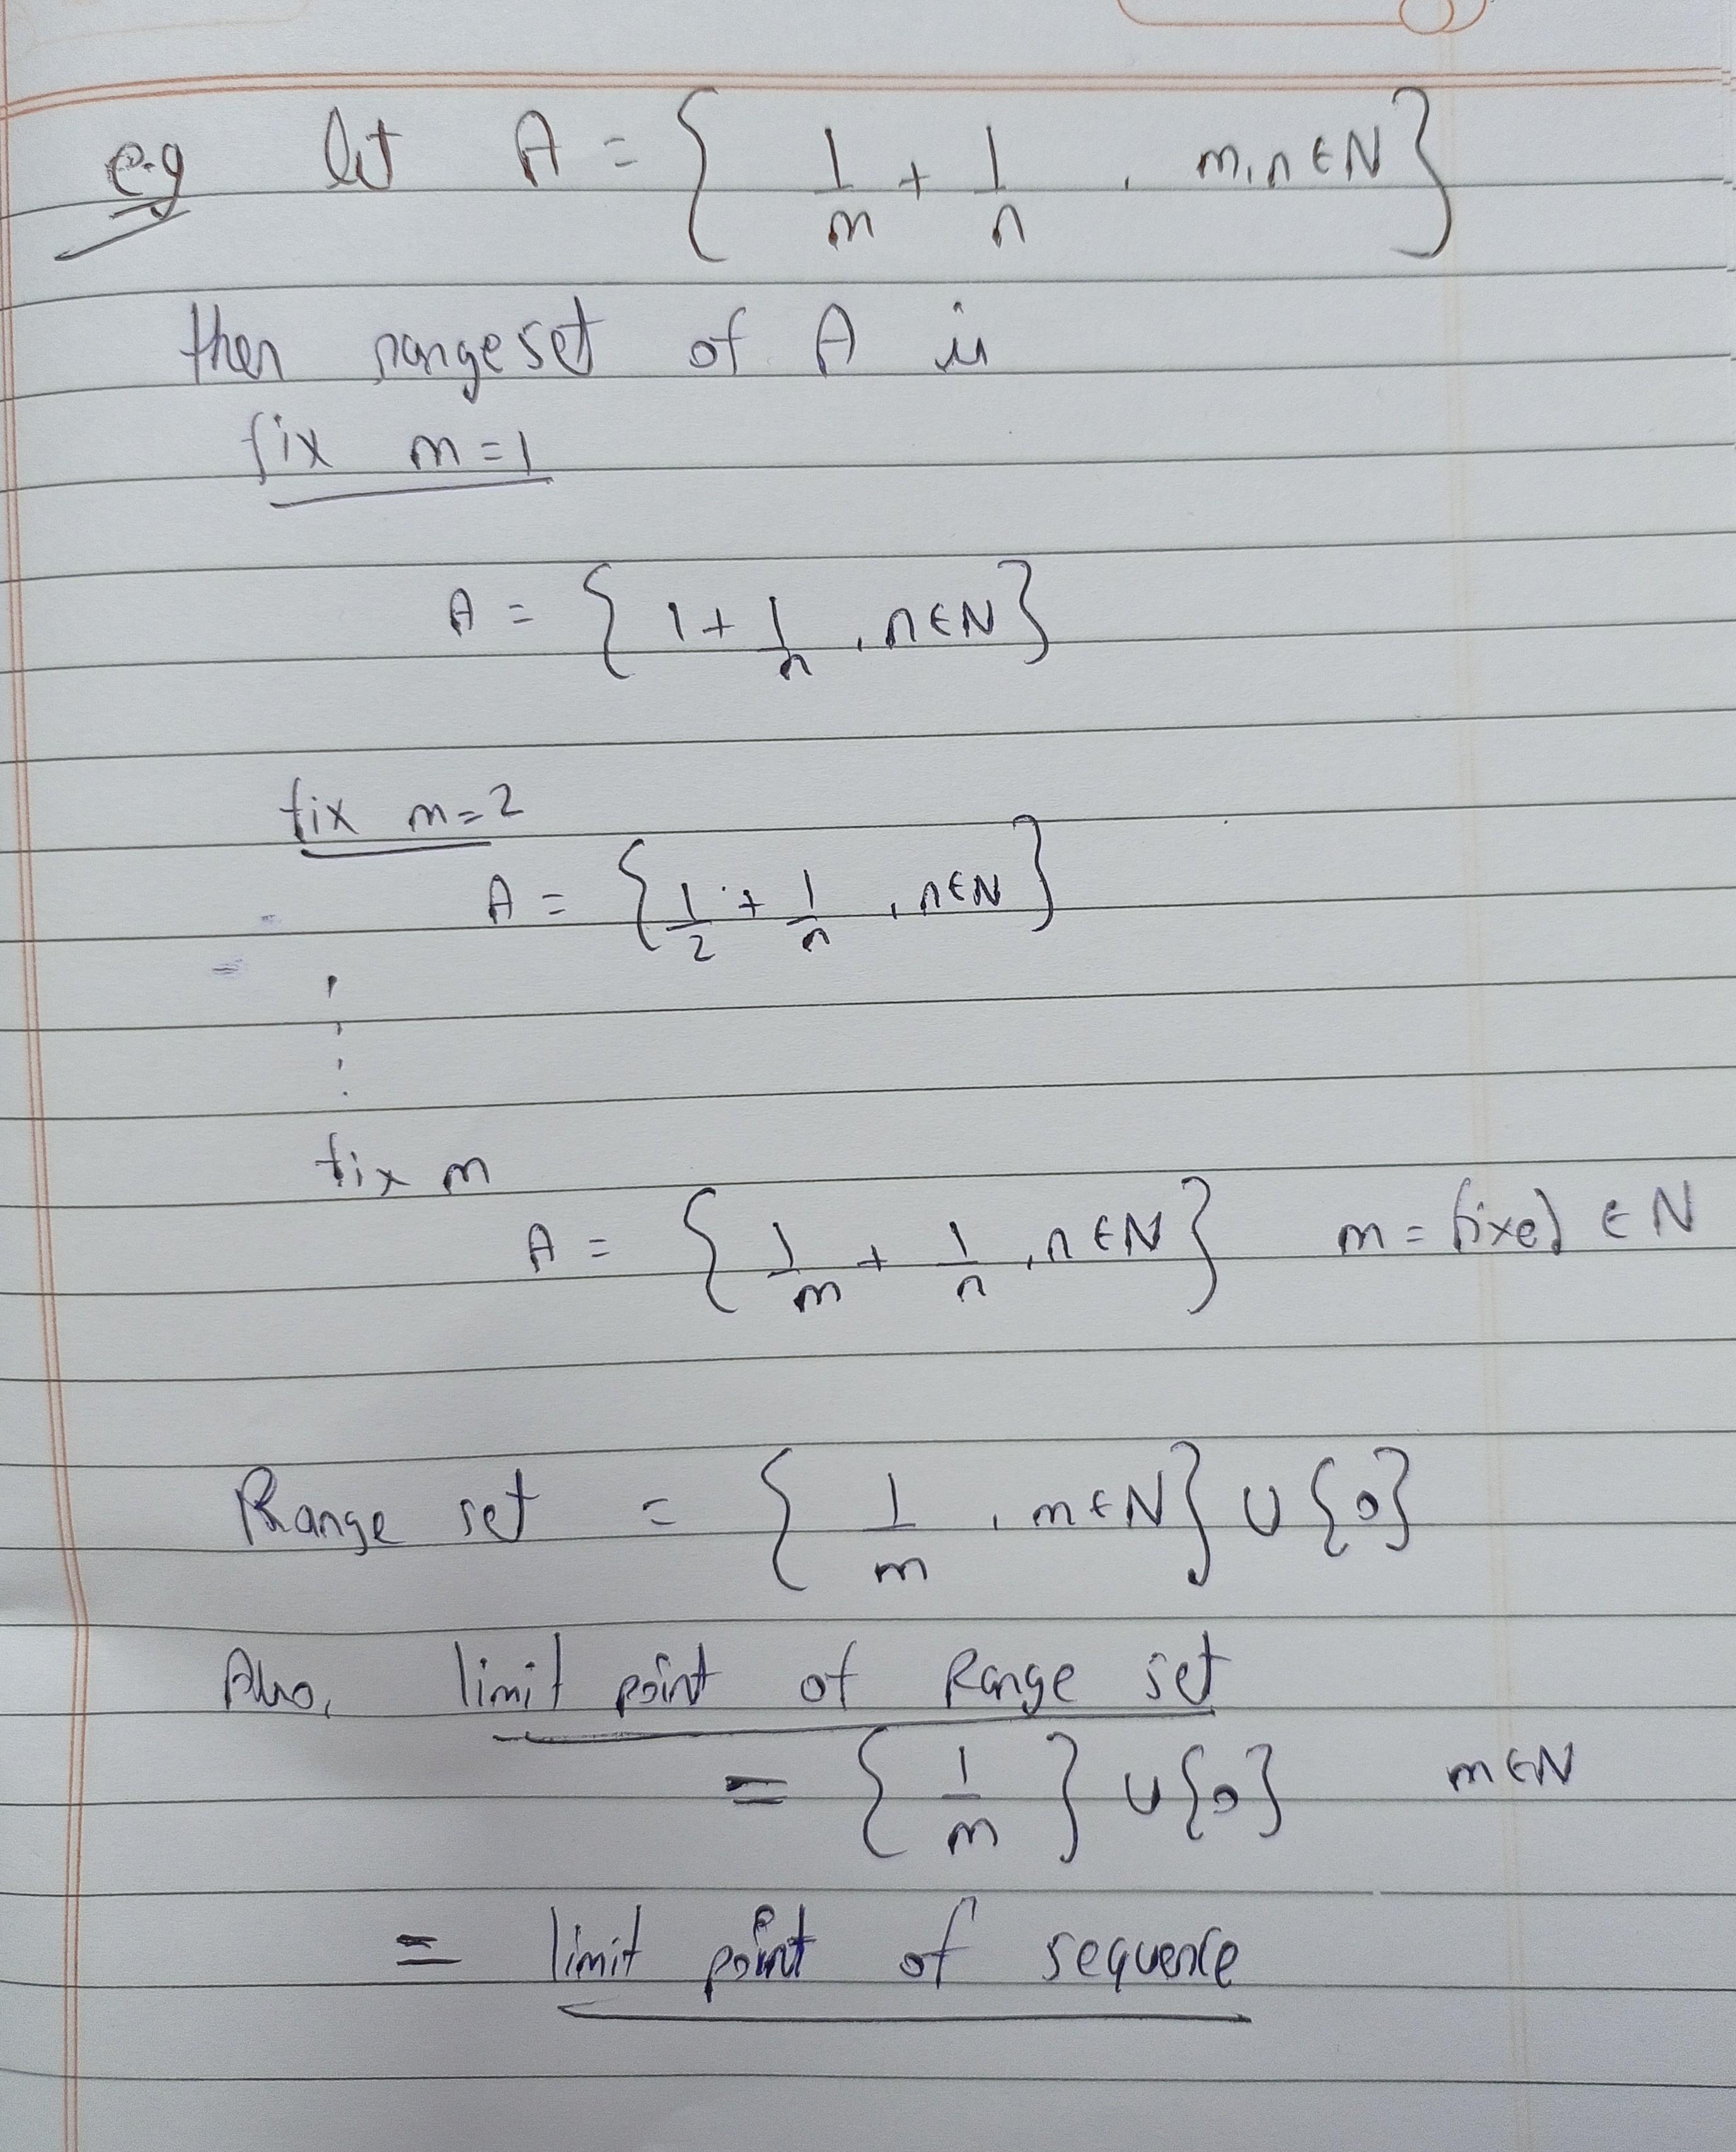 e.g let A = { 1/m + 1/n , m,n ∈ N }
then rangeset of A is
fix m=1
A = { 1 + 1/n , n ∈ N }
fix m=2
A = { 1/2 + 1/n , n ∈ N }
⋮
fix m
A = { 1/m + 1/n , n ∈ N } m = fixed ∈ N
Range set = { 1/m , m ∈ N } ∪ {0}
Also, limit point of Range set
= { 1/m } ∪ {0} m ∈ N
= limit point of sequence